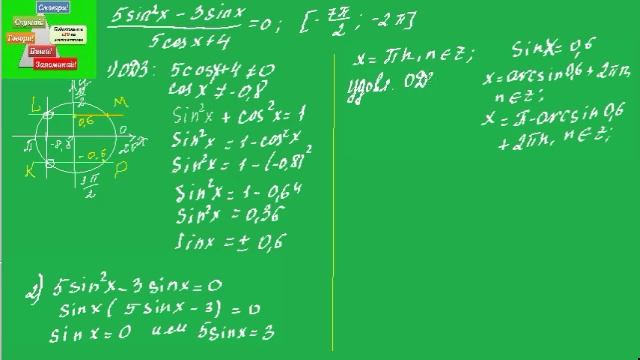 Смотри!
Слушай!
Говори!
Пиши!
Запоминай!
5sin²x - 3sinx
5cosx+4
=0; [-7π/2; -2π]
1) ОДЗ: 5cosx+4≠0
cosx≠-0,8
Sin²x + cos²x = 1
Sin²x = 1 - cos²x
Sin²x = 1 - (-0,8)²
Sin²x = 1 - 0,64
Sin²x = 0,36
Sinx = ± 0,6
π/2
L
M
0,6
π
-0,8
0
2π
x
K
-0,6
P
3π/2
2) 5sin²x - 3sinx = 0
sinx(5sinx - 3) = 0
sinx = 0 или 5sinx = 3
x = πn, n∈z;
Удовл. ОДЗ
Sinx = 0,6
x = arcsin0,6 + 2πn,
n∈z;
x = π - arcsin0,6
+ 2πn, n∈z;